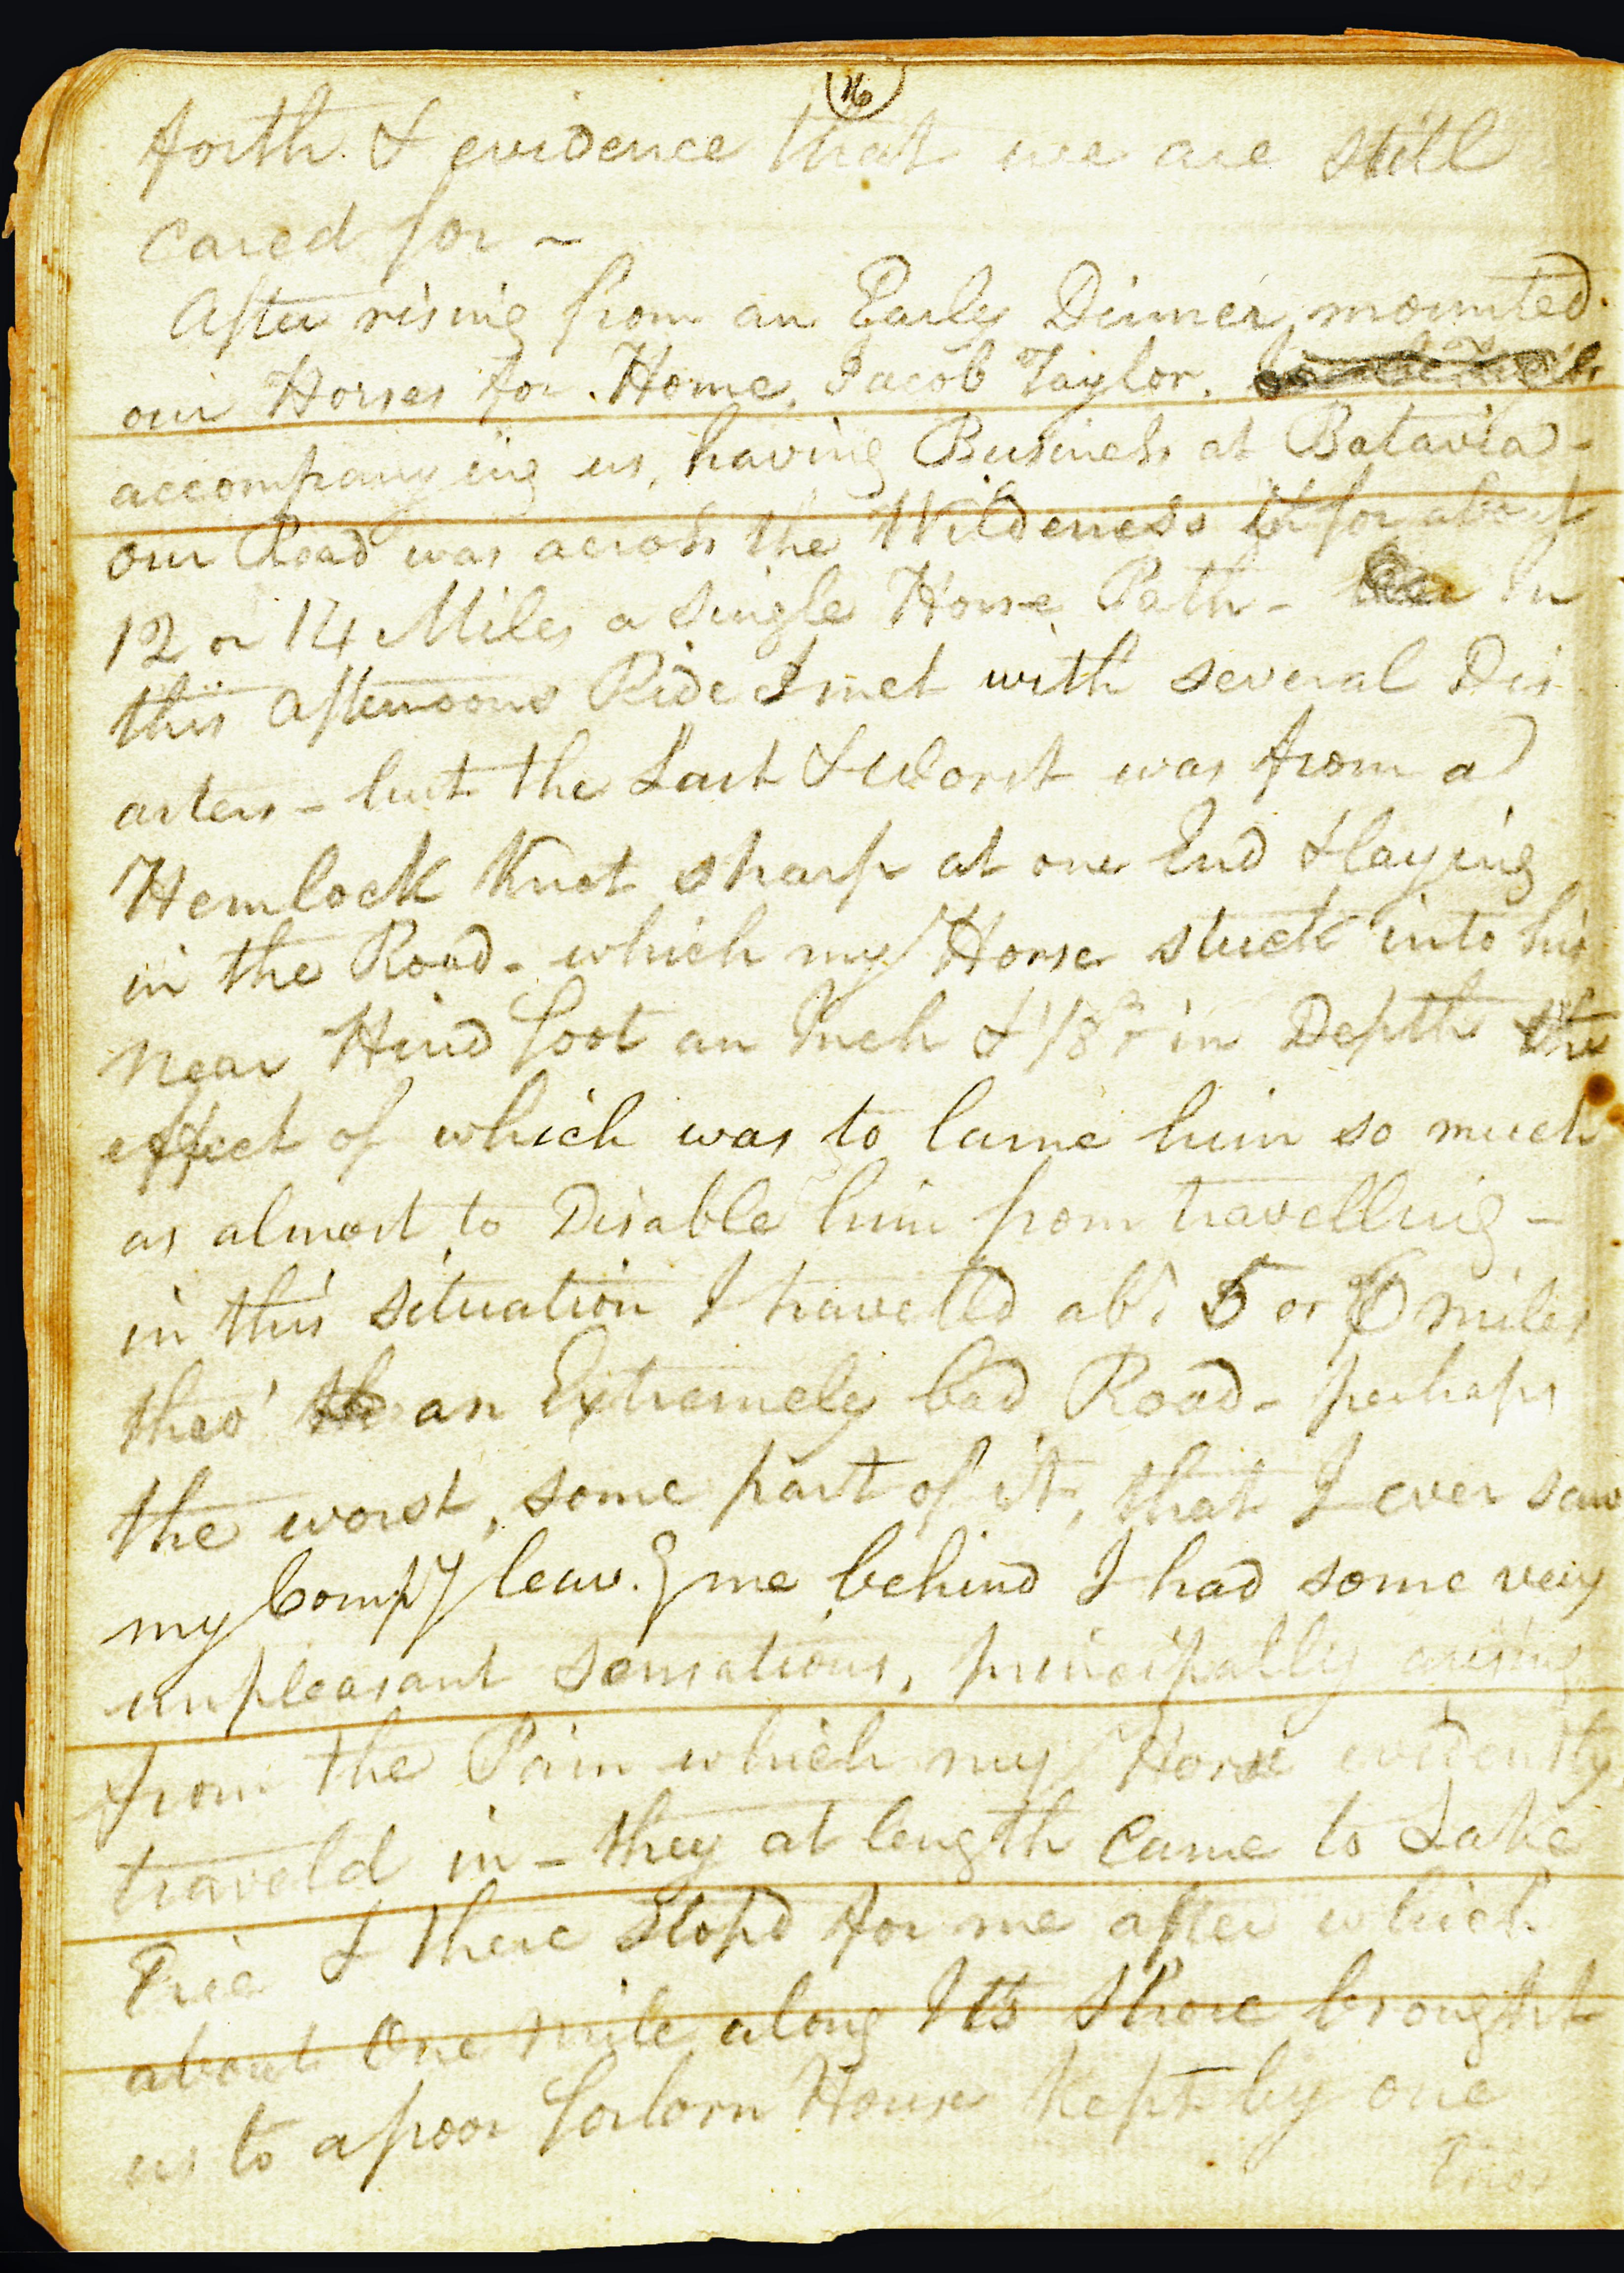 16
forth & evidence that we are still
cared for ~
After rising from an Early Dinner, mounted
our Horses for Home, Jacob Taylor,
accompanying us, having Business at Batavia -
our Road was across the Wilderness & for about
12 or 14 Miles a single Horse Path - In
this afternoons Ride I met with several Dis
asters - but the Last & Worst was from a
Hemlock Knot sharp at one End & laying
in the Road - which my Horse stuck into his
near Hind foot an Inch & 1/8 in Depth the
effect of which was to lame him so much
as almost to Disable him from travelling -
in this situation I traveled abt 5 or 6 miles
thro' an Extremely bad Road - perhaps
the worst, some part of it, that I ever saw
my Compy leavg me behind I had some very
unpleasant sensations, principally arising
from the Pain which my Horse evidently
traveld in - they at length came to Lake
Erie & there stopd for me after which
about One mile along Its Shore brought
us to a poor forlorn House kept by one
Enos